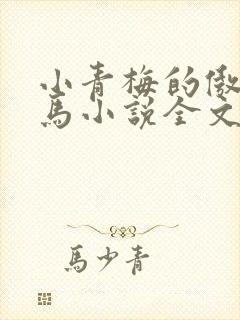 小青梅的傲
馬小說全文
馬少青